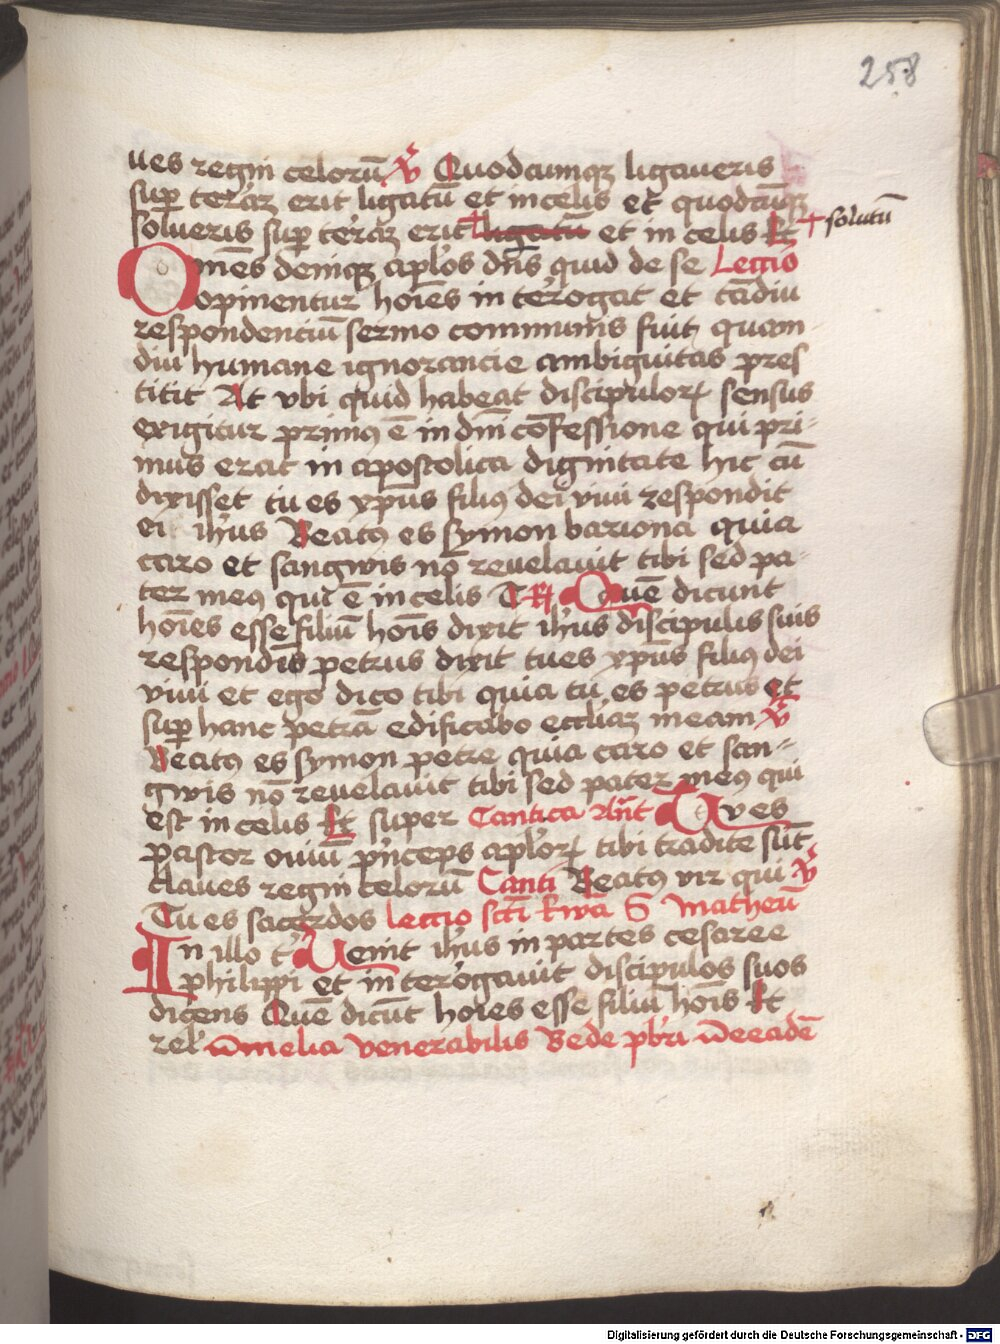 258
ues regni celorū ℣ Quodcumqꝫ ligaueris
suꝑ terāꝫ erit ligatū et in celis et quodcūqꝫ
solueris suꝑ terāꝫ erit ligatū et in celis Et + solutū
Omēs deniqꝫ aplōs dn̄s quid de se Lectio
opinentur hoīes interogat et tādiu
respondenciū sermo cōmunis fuit quam
diu humane ignorancie ambiguitas pres
titit At vbi quid habeat discipuloꝝ sensus
exigitur primꝰ ē in dn̄i cōfessione qui pri-
mus erat in apostolica dignitate hic cū
dixisset tu es xp̄us filiꝰ dei viui respondit
ei ih̄us Beatꝰ es symon bariona quia
caro et sangwis nō reuelauit tibi sed pa-
ter meꝰ qui ē in celis T ℟ Quē dicunt
hoīes esse filiū hoīs dixit ih̄us discipulis suis
respondīs petrus dixit tu es xp̄us filiꝰ dei
viui et ego dico tibi quia tu es petrus et
suꝑ hanc petrā edificabo eccliāꝫ meam ℣
Beatꝰ es symon petre quia caro et san-
gwis nō reuelauit tibi sed pater meꝰ qui
est in celis Et super Cantica Ant̄ Oues
pastor ouiū pn̄ceps aplōꝝ tibi tradite sūt
claues regni celorū Canti Beatꝰ vir qui ℣
Tu es sacerdos lectio sctī Ewā S Matheū
In illo t̄ Venit ih̄us in partes cesaree
philippi et interōgauit discipulos suos
dicens Quē dicūt hoīes esse filiū hoīs Et
rel̄ Omelia venerabilis Bede pbr̄i de eadē
Digitalisierung gefördert durch die Deutsche Forschungsgemeinschaft - DFG